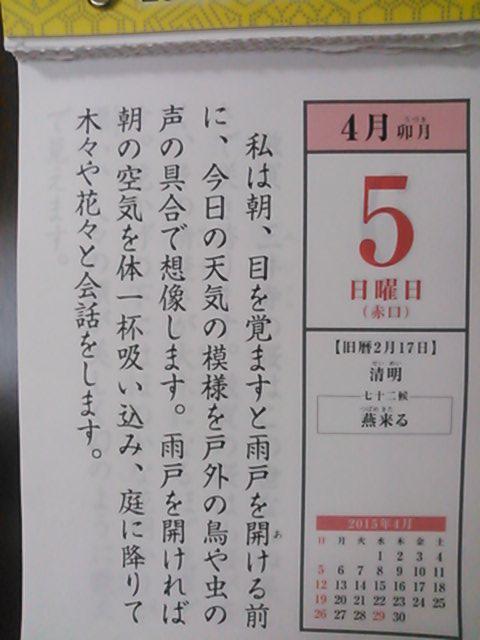 4月 卯月
うづき
5
日曜日
(赤口)
【旧暦2月17日】
せい めい
清明
七十二候
つばめ きた
燕来る
2015年4月
日 月 火 水 木 金 土
1 2 3 4
5 6 7 8 9 10 11
12 13 14 15 16 17 18
19 20 21 22 23 24 25
26 27 28 29 30
私は朝、目を覚ますと雨戸を開ける前
あ
に、今日の天気の模様を戸外の鳥や虫の
声の具合で想像します。雨戸を開ければ
朝の空気を体一杯吸い込み、庭に降りて
木々や花々と会話をします。